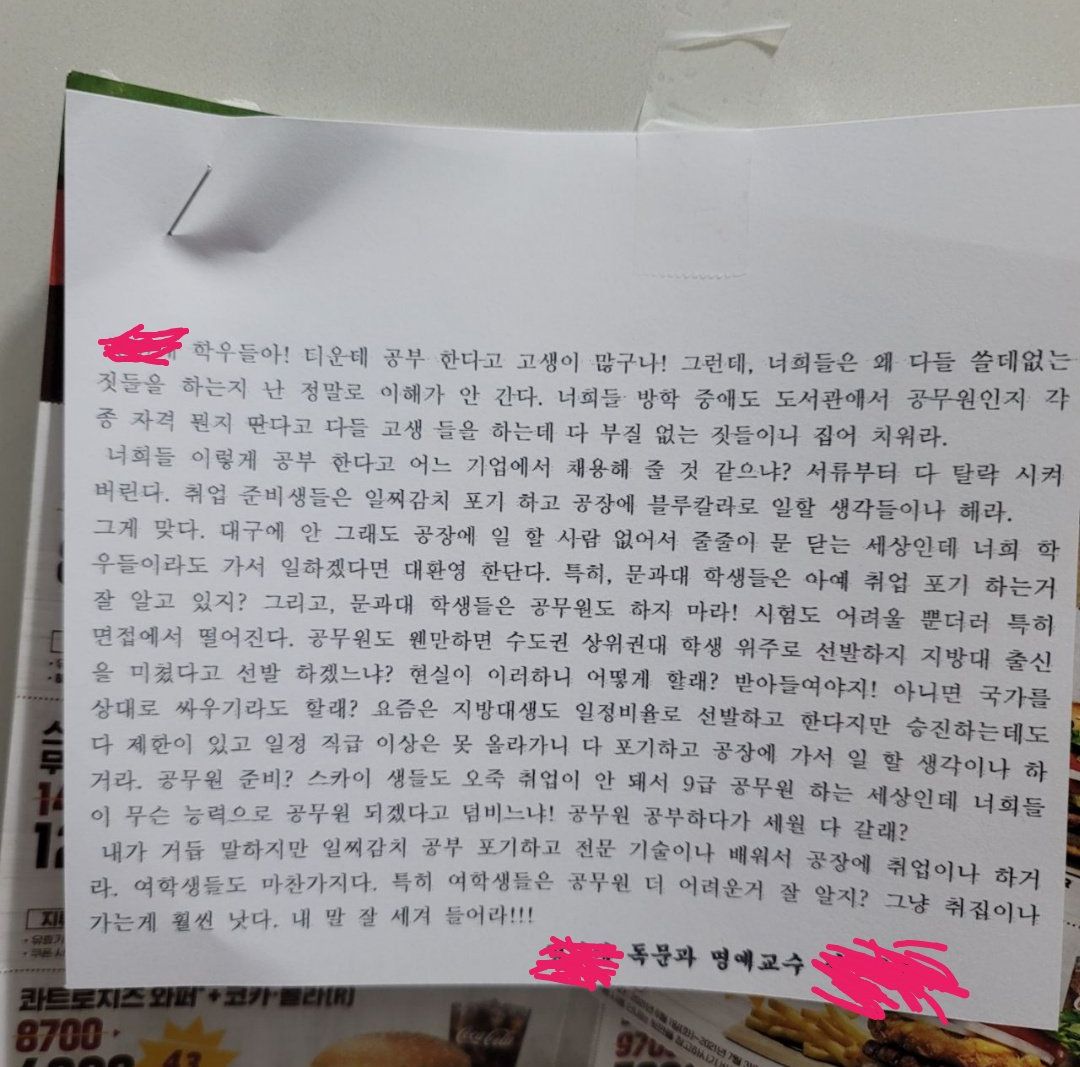 학우들아! 더운데 공부 한다고 고생이 많구나! 그런데, 너희들은 왜 다들 쓸데없는
짓들을 하는지 난 정말로 이해가 안 간다. 너희들 방학 중애도 도서관애서 공무원인지 각
종 자격 뭔지 딴다고 다들 고생 들을 하는데 다 부질 없는 짓들이나 집어 치워라.
너희들 이렇게 공부 한다고 어느 기업에서 채용해 줄 것 같으냐? 서류부터 다 탈락 시켜
버린다. 취업 준비생들은 일찌감치 포기 하고 공장에 블루칼라로 일할 생각들이나 해라.
그게 맞다. 대구에 안 그래도 공장에 일 할 사람 없어서 줄줄이 문 닫는 세상인데 너희 학
우들이라도 가서 일하겠다면 대환영 한단다. 특히, 문과대 학생들은 아예 취업 포기 하는거
잘 알고 있지? 그리고, 문과대 학생들은 공무원도 하지 마라! 시험도 어려울 뿐더러 특히
면접에서 떨어진다. 공무원도 웬만하면 수도권 상위권대 학생 위주로 선발하지 지방대 출신
을 미쳤다고 선발 하겠느냐? 현실이 이러하니 어떻게 할래? 받아들여야지! 아니면 국가를
상대로 싸우기라도 할래? 요즘은 지방대생도 일정비율로 선발하고 한다지만 승진하는데도
다 제한이 있고 일정 직급 이상은 못 올라가니 다 포기하고 공장에 가서 일 할 생각이나 하
거라. 공무원 준비? 스카이 생들도 오죽 취업이 안 돼서 9급 공무원 하는 세상인데 너희들
이 무슨 능력으로 공무원 되겠다고 덤비느냐! 공무원 공부하다가 세월 다 갈래?
내가 거듭 말하지만 일찌감치 공부 포기하고 전문 기술이나 배워서 공장에 취업이나 하거
라. 여학생들도 마찬가지다. 특히 여학생들은 공무원 더 어려운거 잘 알지? 그냥 취집이나
가는게 훨씬 낫다. 내 말 잘 세겨 들어라!!!
독문과 명예교수
콰트로치즈 와퍼 + 코카-콜라(R)
8700